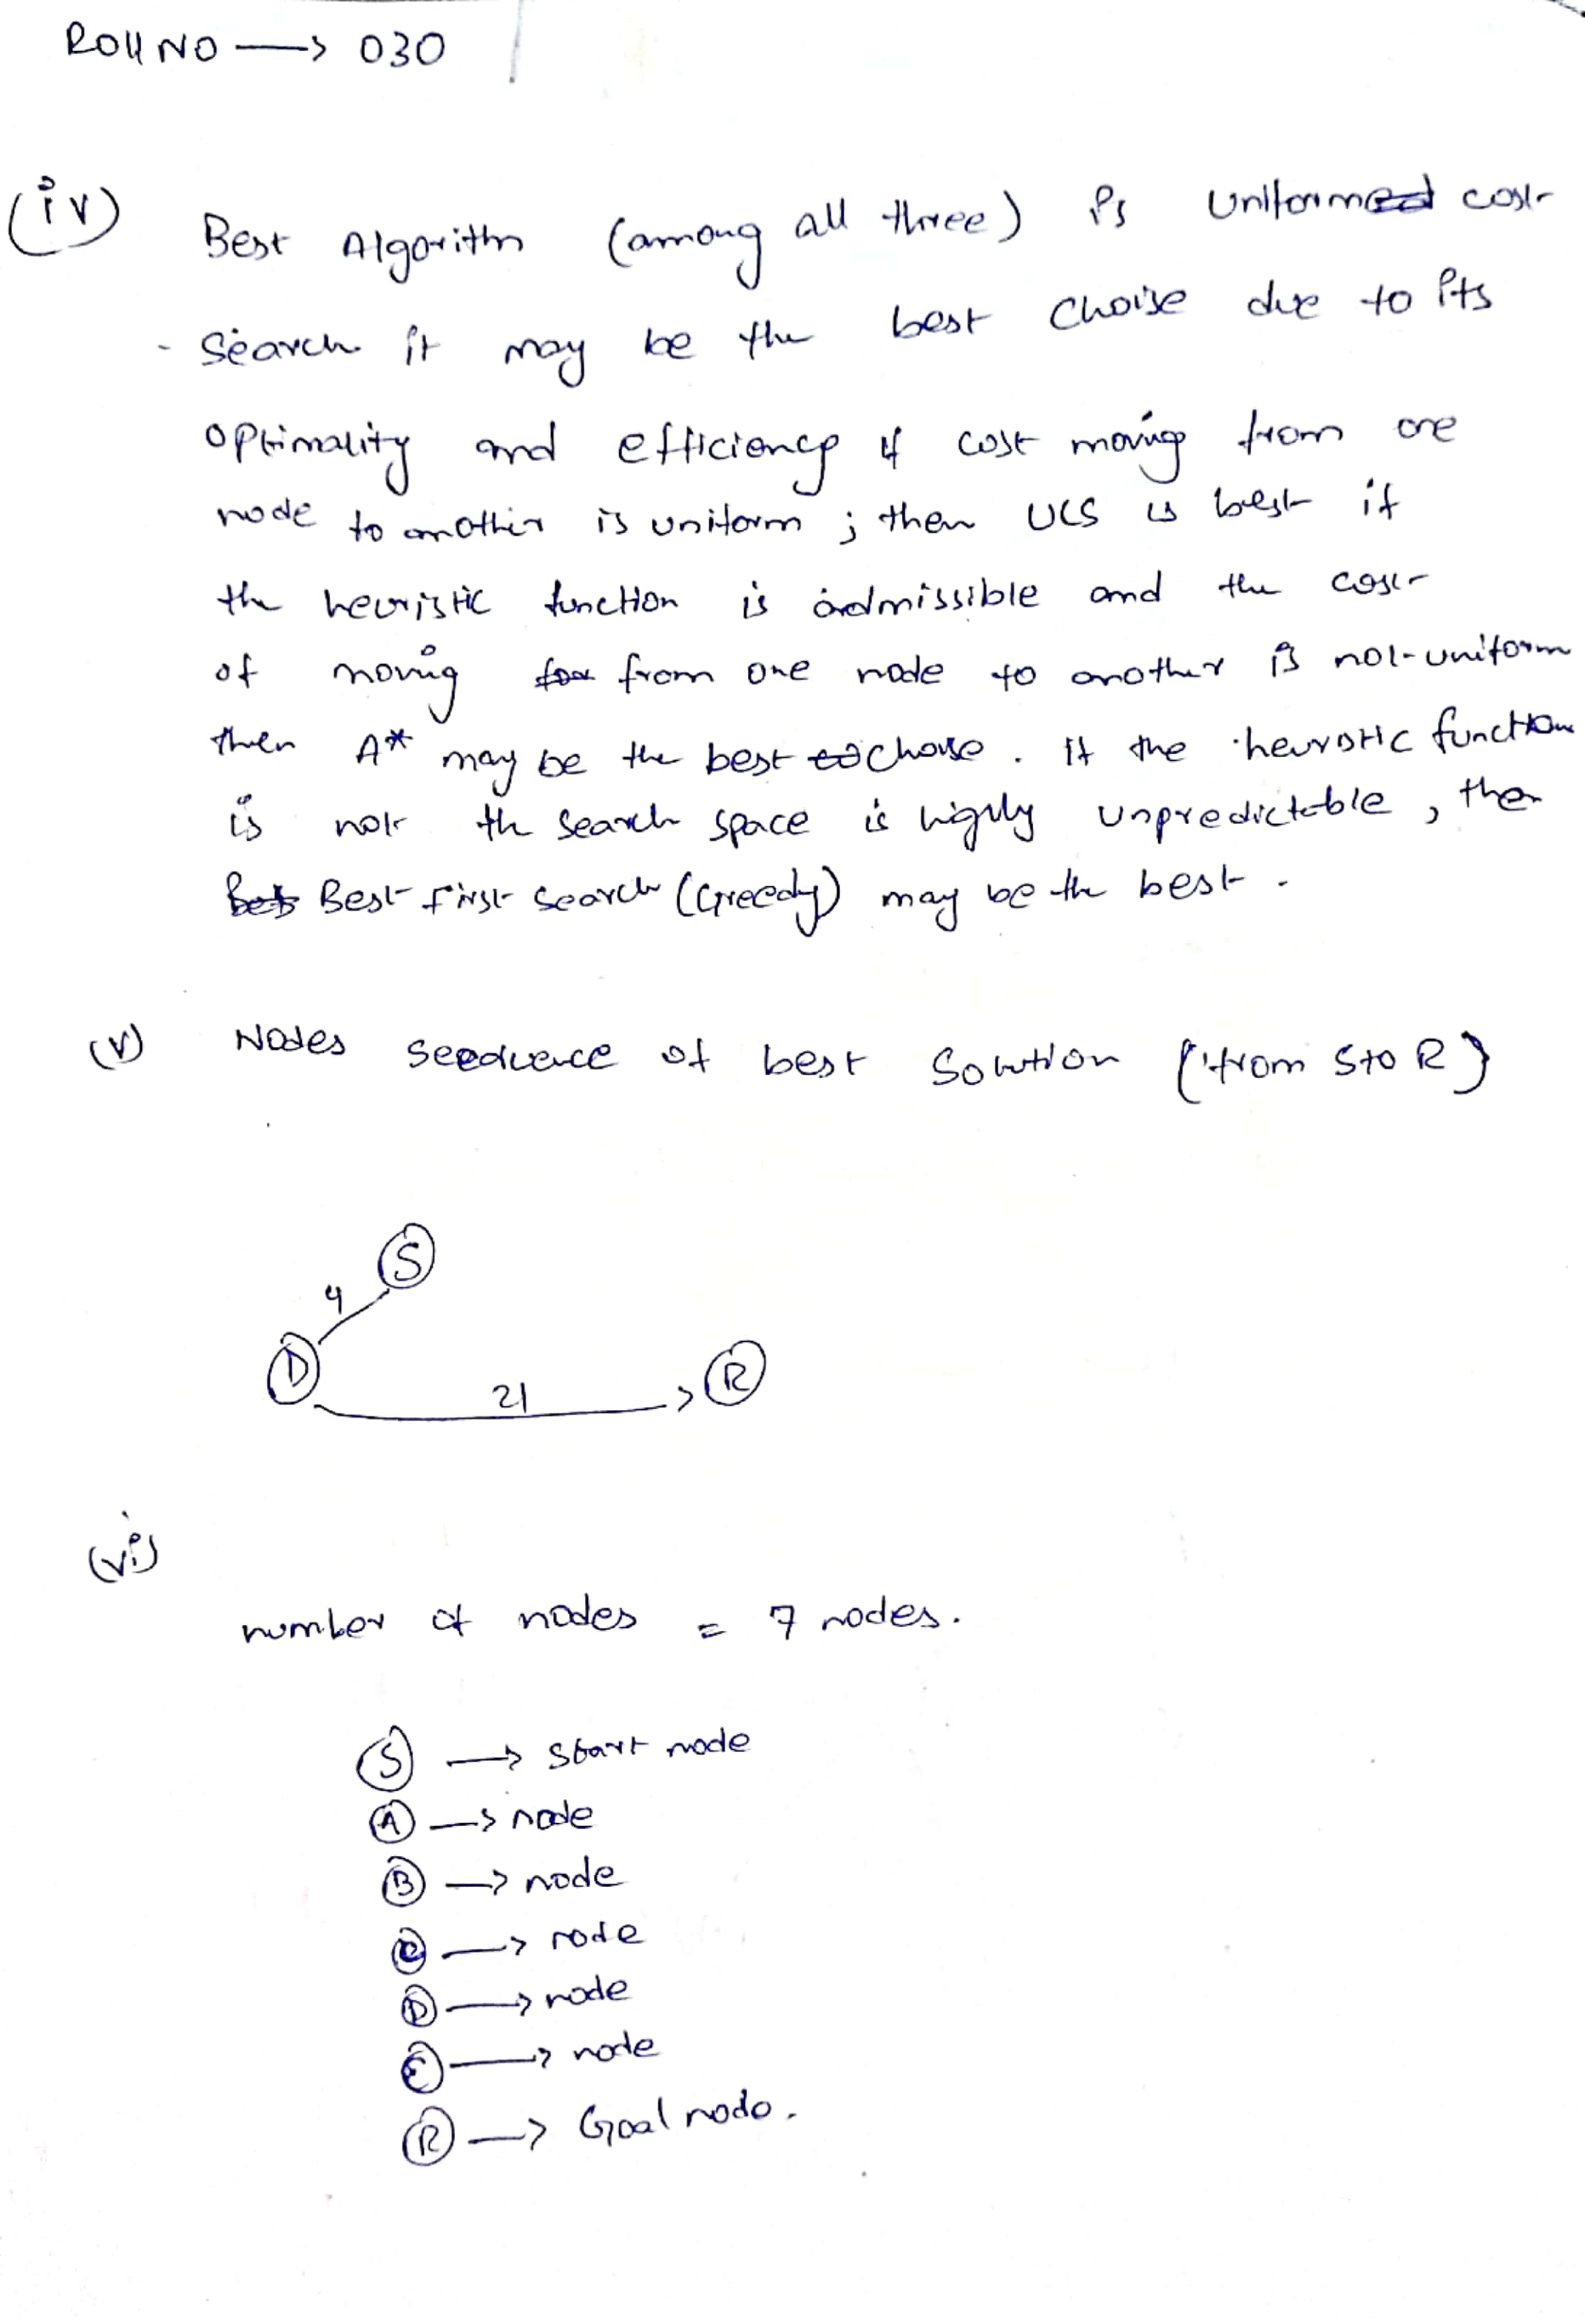 Roll NO → 030
(iv) Best Algorithm (among all three) is Uniformed cost
- Search it may be the best Choise due to its
optimality and efficiency if cost moving from one
node to another is uniform ; then UCS is best if
the heuristic function is admissible and the cost
of moving from one node to another is not-uniform
then A* may be the best choise . If the heuristic function
is not the search space is highly unpredictable , then
Best First Search (Greedy) may be the best .
(v) Nodes sequence of best Solution (from S to R}
S
4
D
21
R
(vi)
number of nodes = 7 nodes.
S → start node
A → node
B → node
C → node
D → node
E → node
R → Goal node.